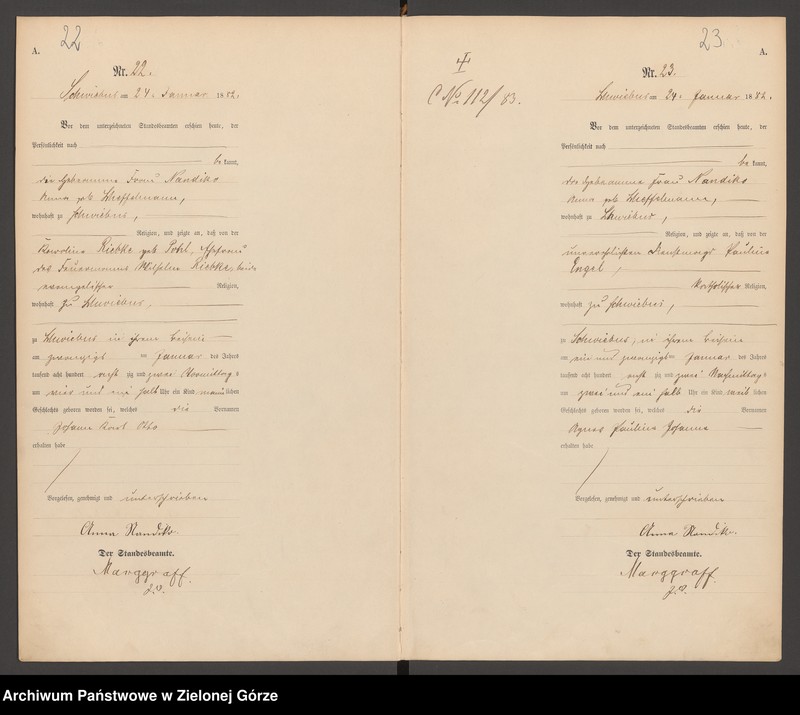 22
A.
Nr. 22.
Schwiebus am 24. Januar 1882.
Vor dem unterzeichneten Standesbeamten erschien heute, der
Persönlichkeit nach
bekannt,
die Hebamme Frau Nandike
Anna geb.
wohnhaft zu Schwiebus,
Religion, und zeigte an, daß von der
Karoline Riebke geb. Pohl, Ehefrau
des Wilhelm Riebke, beide
evangelischer Religion,
wohnhaft zu Schwiebus,
zu Schwiebus in ihrem Beisein
am zwanzigsten Januar des Jahres
tausend acht hundert achtzig und zwei Vormittags
um vier und ein halb Uhr ein Kind männlichen
Geschlechts geboren worden sei, welches die Vornamen
Johann Karl Otto
erhalten habe
Vorgelesen, genehmigt und unterschrieben
Anna Nandike.
Der Standesbeamte.
Marggraff.
23
A.
Nr. 23.
C No 112/83.
Schwiebus am 24. Januar 1882.
Vor dem unterzeichneten Standesbeamten erschien heute, der
Persönlichkeit nach
bekannt,
die Hebamme Frau Nandike
Anna geb.
wohnhaft zu Schwiebus,
Religion, und zeigte an, daß von der
unverehelichten Dienstmagd Pauline
Engel,
katholischer Religion,
wohnhaft zu Schwiebus,
zu Schwiebus, in ihrem Beisein
am ein und zwanzigsten Januar des Jahres
tausend acht hundert achtzig und zwei Nachmittags
um zwei und ein halb Uhr ein Kind weiblichen
Geschlechts geboren worden sei, welches die Vornamen
Agnes Pauline Johanna
erhalten habe
Vorgelesen, genehmigt und unterschrieben
Anna Nandike.
Der Standesbeamte.
Marggraff.
Archiwum Państwowe w Zielonej Górze